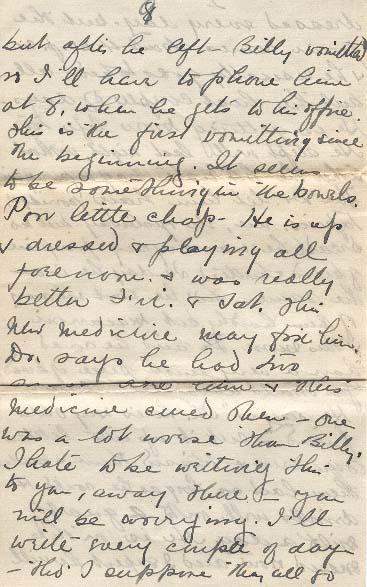 8
but after he left - Billy vomitted
so I'll have to phone him
at 8, when he gets to his office.
This is the first vomitting since
the beginning. It seems
to be something in the bowels.
Poor little chap - He is up
& dressed & playing all
forenoon. & was really
better Fri. & Sat. This
new medicine may fix him.
Dr. says he had two
& this
medicine cured them - one
was a lot worse than Billy.
I hate to be writing this
to you, away there - you
will be worrying. I'll
write every couple of days
- tho' I suppose they all go